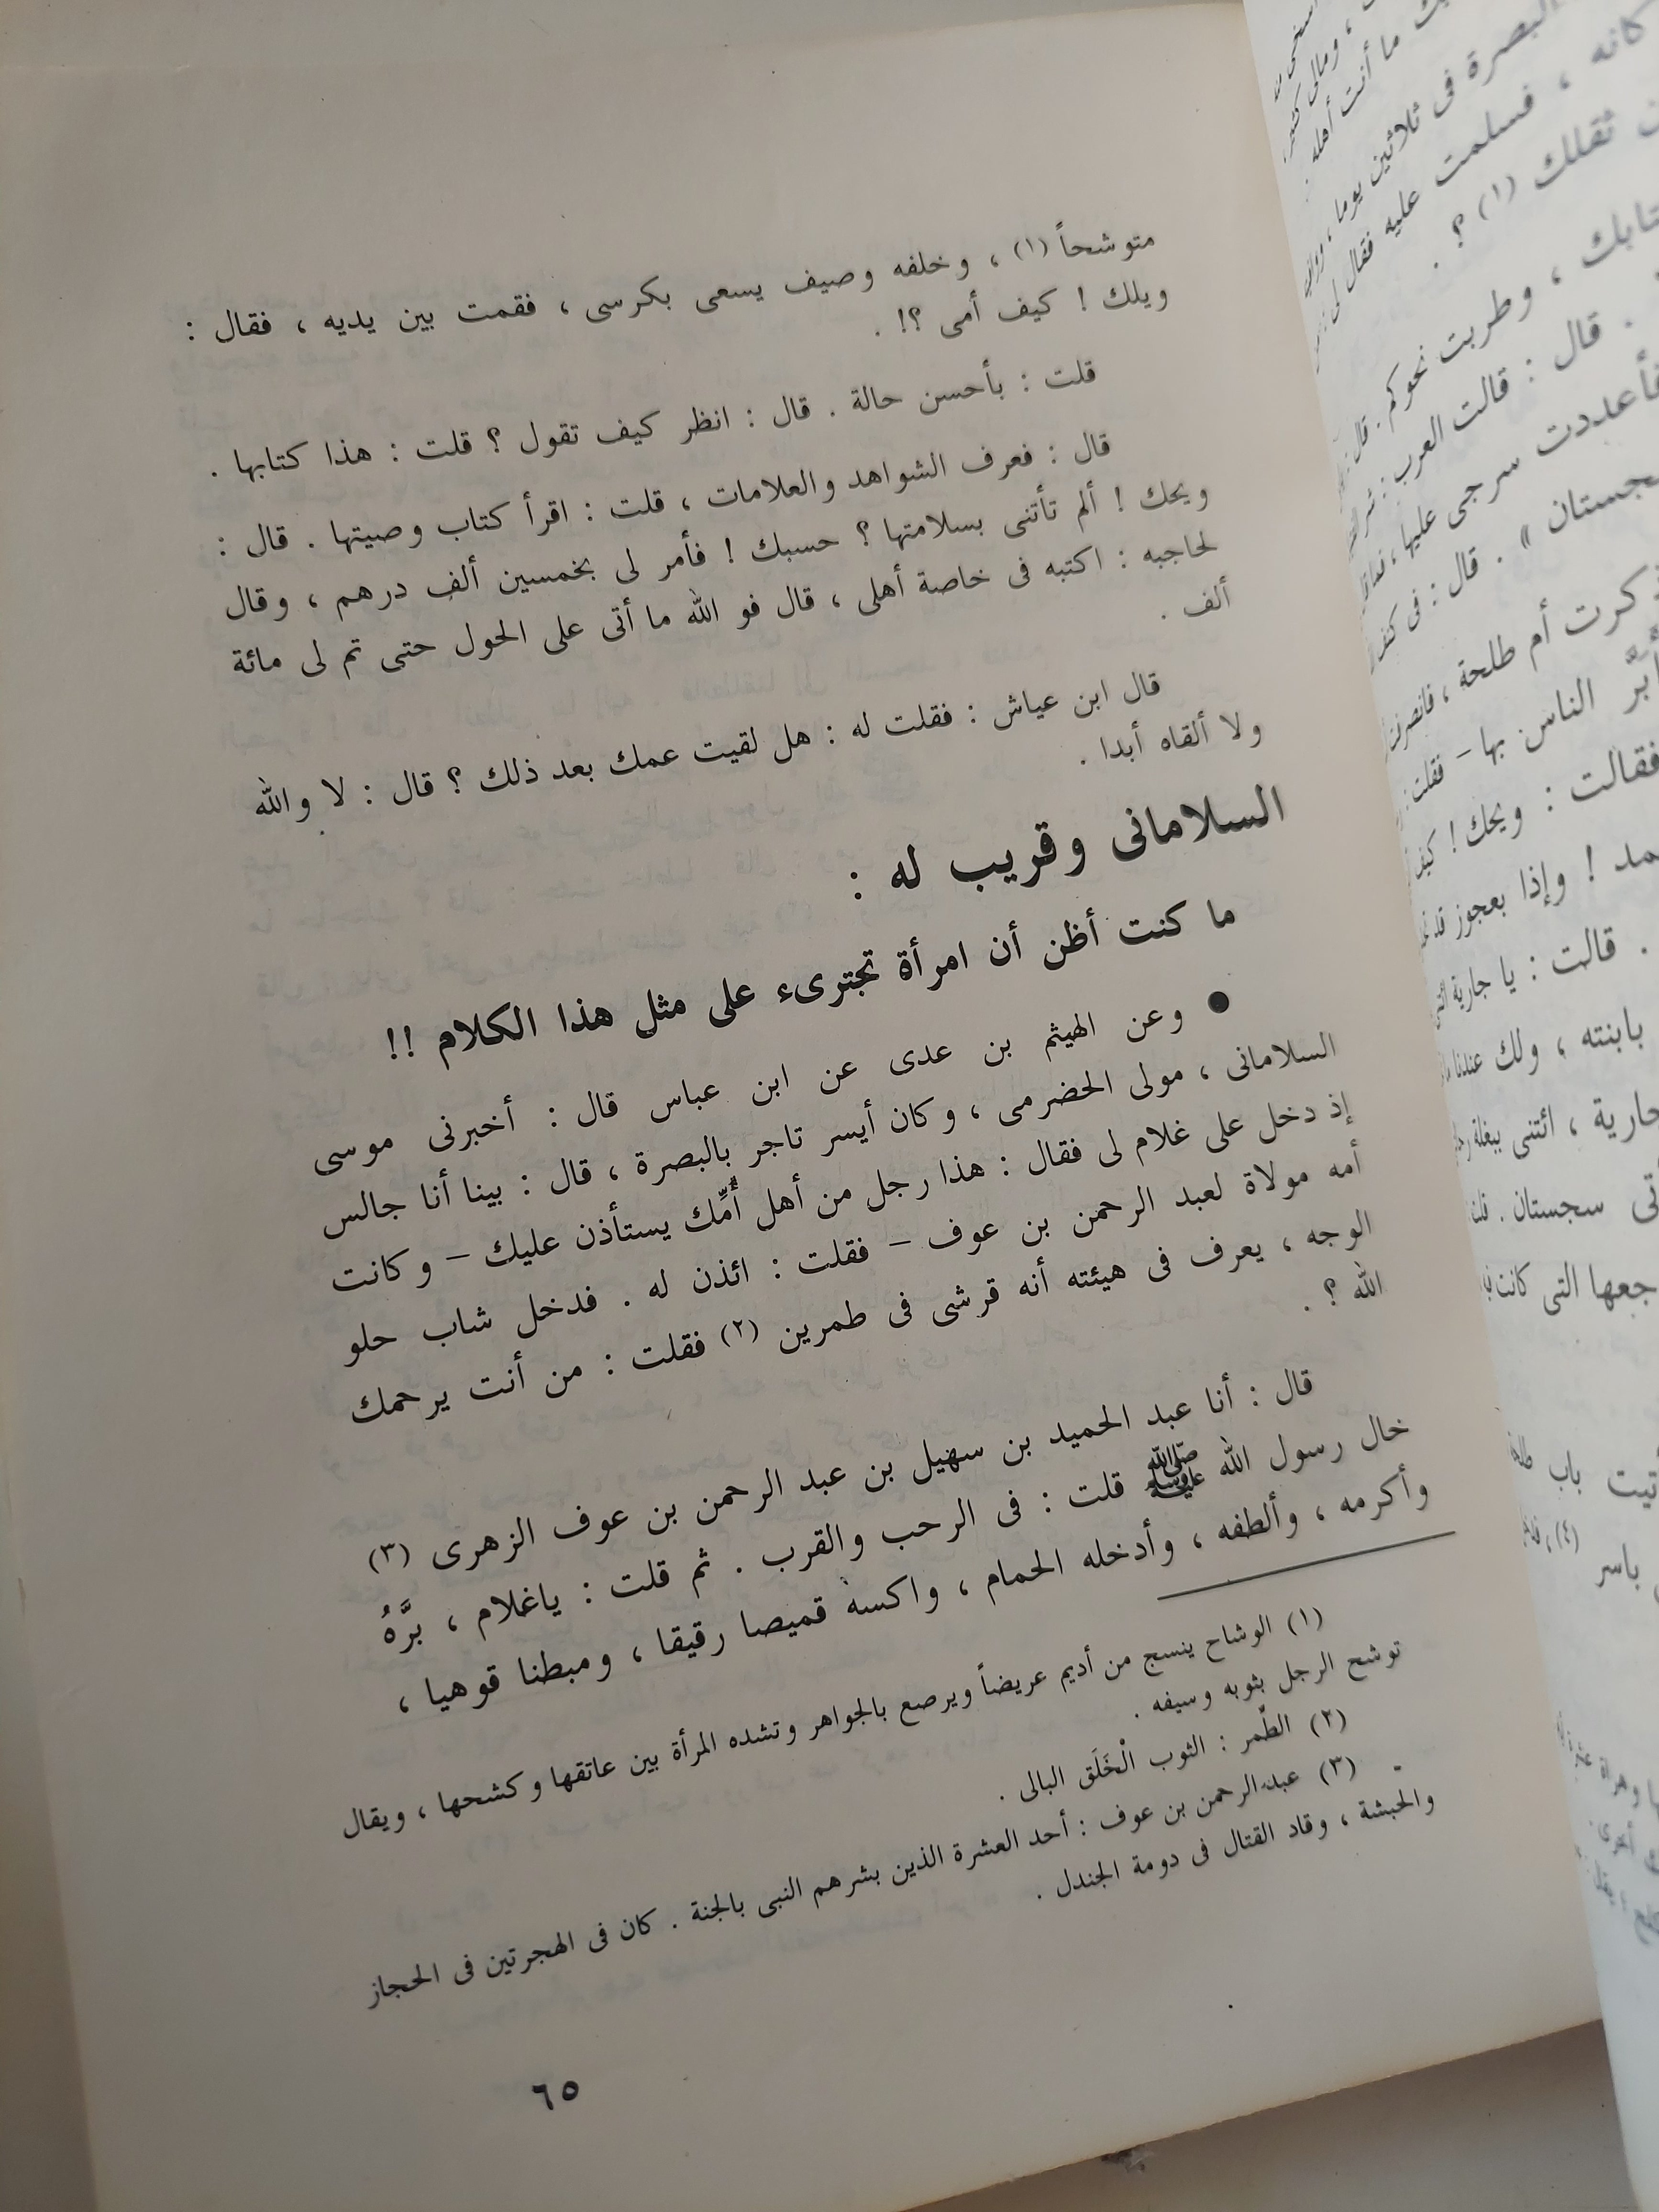 متوشحاً (١) ، وخلفه وصيف يسعى بكرسى ، فقمت بين يديه ، فقال :
ويلك ! كيف أمى ؟! .
قلت : بأحسن حالة . قال : انظر كيف تقول ؟ قلت : هذا كتابها .
قال : فعرف الشواهد والعلامات ، قلت : اقرأ كتاب وصيتها . قال :
ويحك ! ألم تأتنى بسلامتها ؟ حسبك ! فأمر لى بخمسين ألف درهم ، وقال
لحاجبه : اكتبه فى خاصة أهلى ، قال فو الله ما أتى على الحول حتى تم لى مائة
ألف .
قال ابن عياش : فقلت له : هل لقيت عمك بعد ذلك ؟ قال : لا والله
ولا ألقاه أبدا .
السلامانى وقريب له :
ما كنت أظن أن امرأة تجترىء على مثل هذا الكلام !!
● وعن الهيثم بن عدى عن ابن عباس قال : أخبرنى موسى
السلامانى ، مولى الحضرمى ، وكان أيسر تاجر بالبصرة ، قال : بينا أنا جالس
إذ دخل على غلام لى فقال : هذا رجل من أهل أُمِّك يستأذن عليك – وكانت
أمه مولاة لعبد الرحمن بن عوف – فقلت : ائذن له . فدخل شاب حلو
الوجه ، يعرف فى هيئته أنه قرشى فى طمرين (٢) فقلت : من أنت يرحمك
الله ؟ .
قال : أنا عبد الحميد بن سهيل بن عبد الرحمن بن عوف الزهرى (٣)
خال رسول الله ﷺ قلت : فى الرحب والقرب . ثم قلت : ياغلام ، برَّهُ
وأكرمه ، وألطفه ، وأدخله الحمام ، واكسه قميصا رقيقا ، ومبطنا قوهيا ،
(١) الوشاح ينسج من أديم عريضاً ويرصع بالجواهر وتشده المرأة بين عاتقها وكشحها ، ويقال
توشح الرجل بثوبه وسيفه .
(٢) الطِّمر : الثوب الْخَلَق البالى .
(٣) عبد الرحمن بن عوف : أحد العشرة الذين بشرهم النبى بالجنة . كان فى الهجرتين فى الحجاز
والحبشة ، وقاد القتال فى دومة الجندل .
٦٥
ما أنت أهله .
البصرة فى ثلاثين يوما
كانه ، فسلمت عليه فقال لى
ثقلك (١) ؟ .
وطربت نحوكم . قال :
. قال : قالت العرب :
فأعددت سرجى عليها ،
سجستان » . قال : فى
ذكرت أم طلحة ، فانصرفت
أبرَّ الناس بها – فقلت :
فقالت : ويحك !
! وإذا بعجوز قد
. قالت : يا جارية
بابنته ، ولك عندنا
جارية ، ائتنى ببغلة
سجستان . قلت
التى كانت
باب
ياسر (٤)